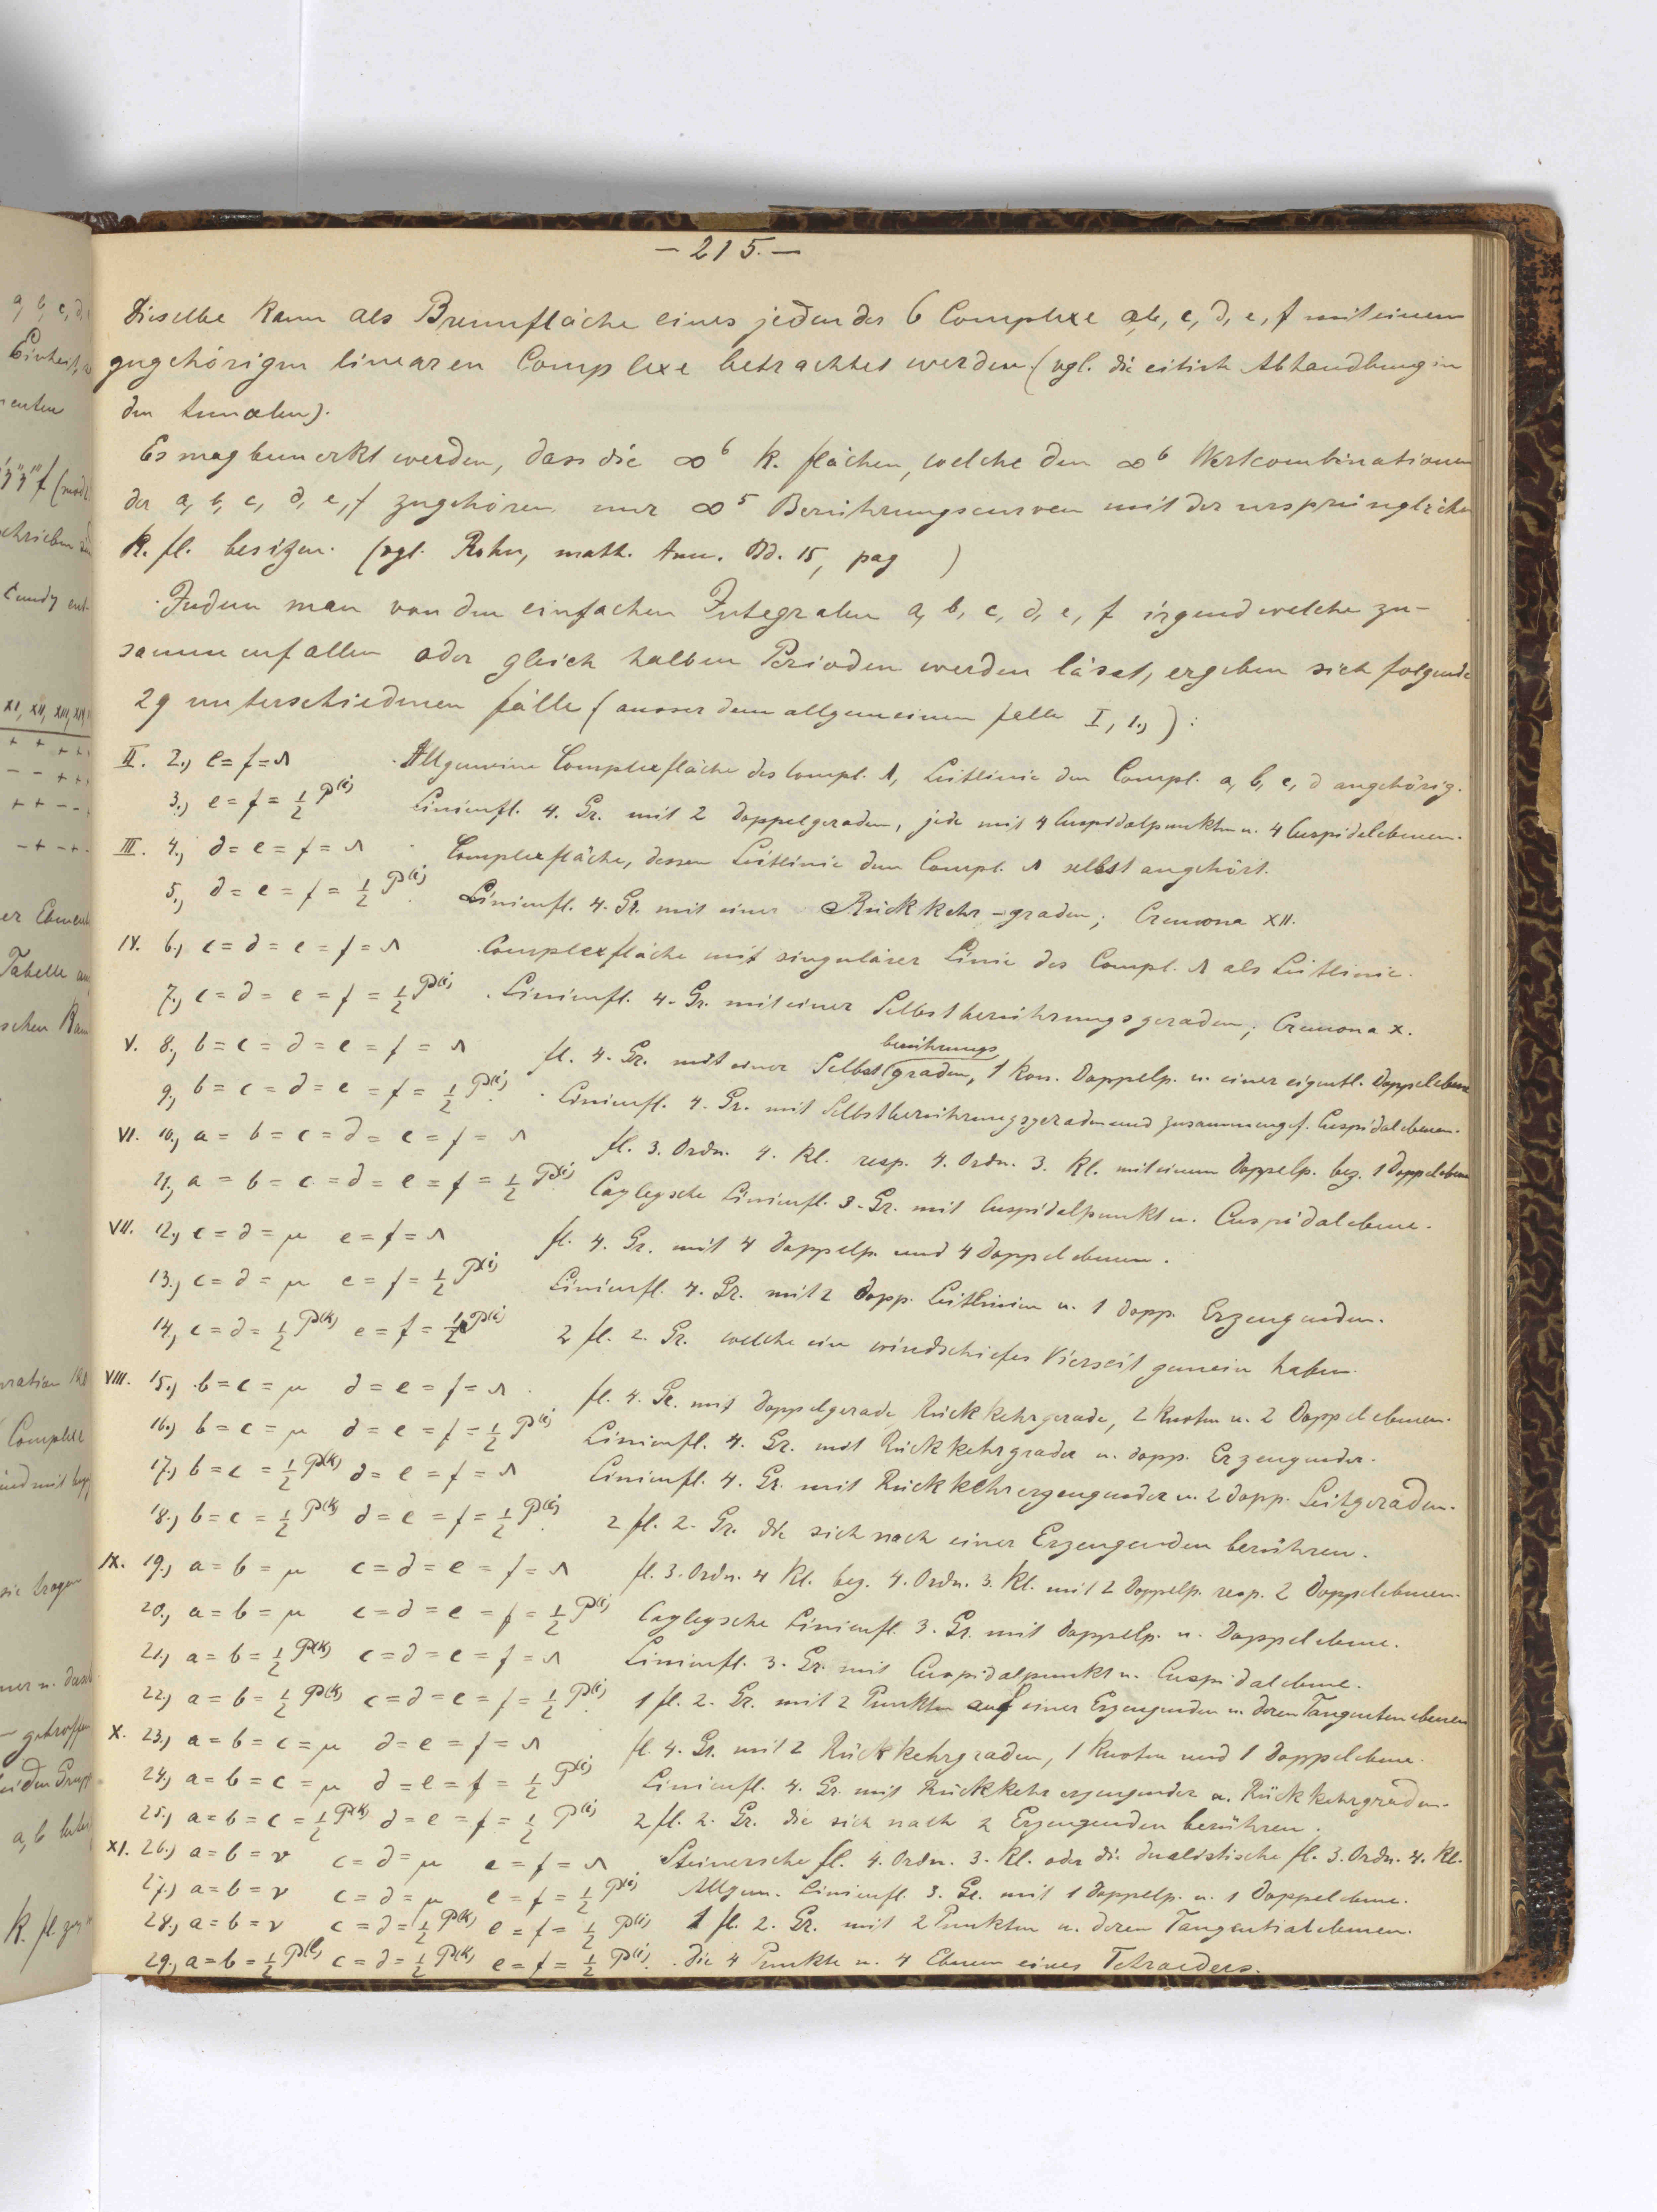 - 215. -
Dieselbe kann als Brennfläche eines jeden der 6 Complexe a, b, c, d, e, f mit einem
zugehörigen linearen Complexe betrachtet werden. (vgl. die citirte Abhandlung in
den Annalen).
Es mag bemerkt werden, dass die ∞⁶ K. flächen, welche den ∞⁶ Wertcombinationen
der a, b, c, d, e, f zugehören nur ∞⁵ Berührungscurven mit der ursprünglichen
K. fl. besitzen. (vgl. Rohn, math. Ann. Bd. 15, pag )
Indem man von den einfachen Integralen a, b, c, d, e, f irgend welche zu-
sammenfallen oder gleich halben Perioden werden lässt, ergeben sich folgende
29 unterschiedenen fälle (ausser dem allgemeinen falle I, 1.,) :
II. 2., e = f = λ Allgemeine Complexfläche des Compl. λ, Leitlinie den Compl. a, b, c, d angehörig.
3., e = f = ½ P⁽ⁱ⁾ Linienfl. 4. Gr. mit 2 Doppelgeraden, jede mit 4 Cuspidalpunkten u. 4 Cuspidalebenen.
III. 4., d = e = f = λ Complexfläche, dessen Leitlinie dem Compl. λ selbst angehört.
5., d = e = f = ½ P⁽ⁱ⁾. Linienfl. 4. Gr. mit einer Rückkehr-graden; Cremona XII.
IV. 6., c = d = e = f = λ Complexfläche mit singulärer Linie des Compl. λ als Leitlinie.
7., c = d = e = f = ½ P⁽ⁱ⁾. Linienfl. 4. Gr. mit einer Selbstberührungsgeraden; Cremona X.
V. 8., b = c = d = e = f = λ fl. 4. Gr. mit einer Selbst(berührungs graden, 1 kon. Doppelp. u. einer eigentl. Doppelebene
9., b = c = d = e = f = ½ P⁽ⁱ⁾. Linienfl. 4. Gr. mit Selbstberührungsgeraden und zusammengef. Cuspidalebenen.
VI. 10., a = b = c = d = e = f = λ fl. 3. Ordn. 4. Kl. resp. 4. Ordn. 3. Kl. mit einem Doppelp. bez. 1 Doppelebene
11., a = b = c = d = e = f = ½ P⁽ⁱ⁾. Cayleysche Linienfl. 3. Gr. mit Cuspidalpunkt u. Cuspidalebene.
VII. 12., c = d = μ e = f = λ fl. 4. Gr. mit 4 Doppelp. und 4 Doppelebenen.
13., c = d = μ e = f = ½ P⁽ⁱ⁾ Linienfl. 4. Gr. mit 2 Dopp. Leitlinien u. 1 dopp. Erzeugenden.
14., c = d = ½ P⁽ᵏ⁾ e = f = ½ P⁽ⁱ⁾ 2 fl. 2. Gr. welche ein windschiefes Vierseit gemein haben.
VIII. 15., b = c = μ d = e = f = λ fl. 4. Gr. mit Doppelgerade, Rückkehrgerade, 2 Knoten u. 2 Doppelebenen.
16., b = c = μ d = e = f = ½ P⁽ⁱ⁾ Linienfl. 4. Gr. mit Rückkehrgrader u. dopp. Erzeugender.
17., b = c = ½ P⁽ᵏ⁾ d = e = f = λ Linienfl. 4. Gr. mit Rückkehrerzeugender u. 2 dopp. Leitgeraden.
18., b = c = ½ P⁽ᵏ⁾ d = e = f = ½ P⁽ⁱ⁾. 2 fl. 2. Gr. die sich nach einer Erzeugenden berühren.
IX. 19., a = b = μ c = d = e = f = λ fl. 3. Ordn. 4 Kl. bez. 4. Ordn. 3. Kl. mit 2 Doppelp. resp. 2 Doppelebenen.
20., a = b = μ c = d = e = f = ½ P⁽ⁱ⁾ Cayleysche Linienfl. 3. Gr. mit Doppelp. u. Doppelebene.
21., a = b = ½ P⁽ᵏ⁾ c = d = e = f = λ Linienfl. 3. Gr. mit Cuspidalpunkt u. Cuspidalebene.
22., a = b = ½ P⁽ᵏ⁾ c = d = e = f = ½ P⁽ⁱ⁾. 1 fl. 2. Gr. mit 2 Punkten auf einer Erzeugenden u. deren Tangentenebenen
X. 23., a = b = c = μ d = e = f = λ fl. 4. Gr. mit 2 Rückkehrgraden, 1 Knoten und 1 Doppelebene.
24., a = b = c = μ d = e = f = ½ P⁽ⁱ⁾ Linienfl. 4. Gr. mit Rückkehrerzeugender u. Rückkehrgraden.
25., a = b = c = ½ P⁽ᵏ⁾ d = e = f = ½ P⁽ⁱ⁾ 2 fl. 2. Gr. die sich nach 2 Erzeugenden berühren.
XI. 26., a = b = ν c = d = μ e = f = λ. Steinersche fl. 4. Ordn. 3. Kl. oder die dualistische fl. 3. Ordn. 4. Kl.
27., a = b = ν c = d = μ e = f = ½ P⁽ⁱ⁾ Allgem. Linienfl. 3. Gr. mit 1 Doppelp. u. 1 Doppelebene.
28., a = b = ν c = d = ½ P⁽ᵏ⁾ e = f = ½ P⁽ⁱ⁾ 1 fl. 2. Gr. mit 2 Punkten u. deren Tangentialebenen.
29., a = b = ½ P⁽ˡ⁾ c = d = ½ P⁽ᵏ⁾ e = f = ½ P⁽ⁱ⁾. Die 4 Punkte u. 4 Ebenen eines Tetraeders.